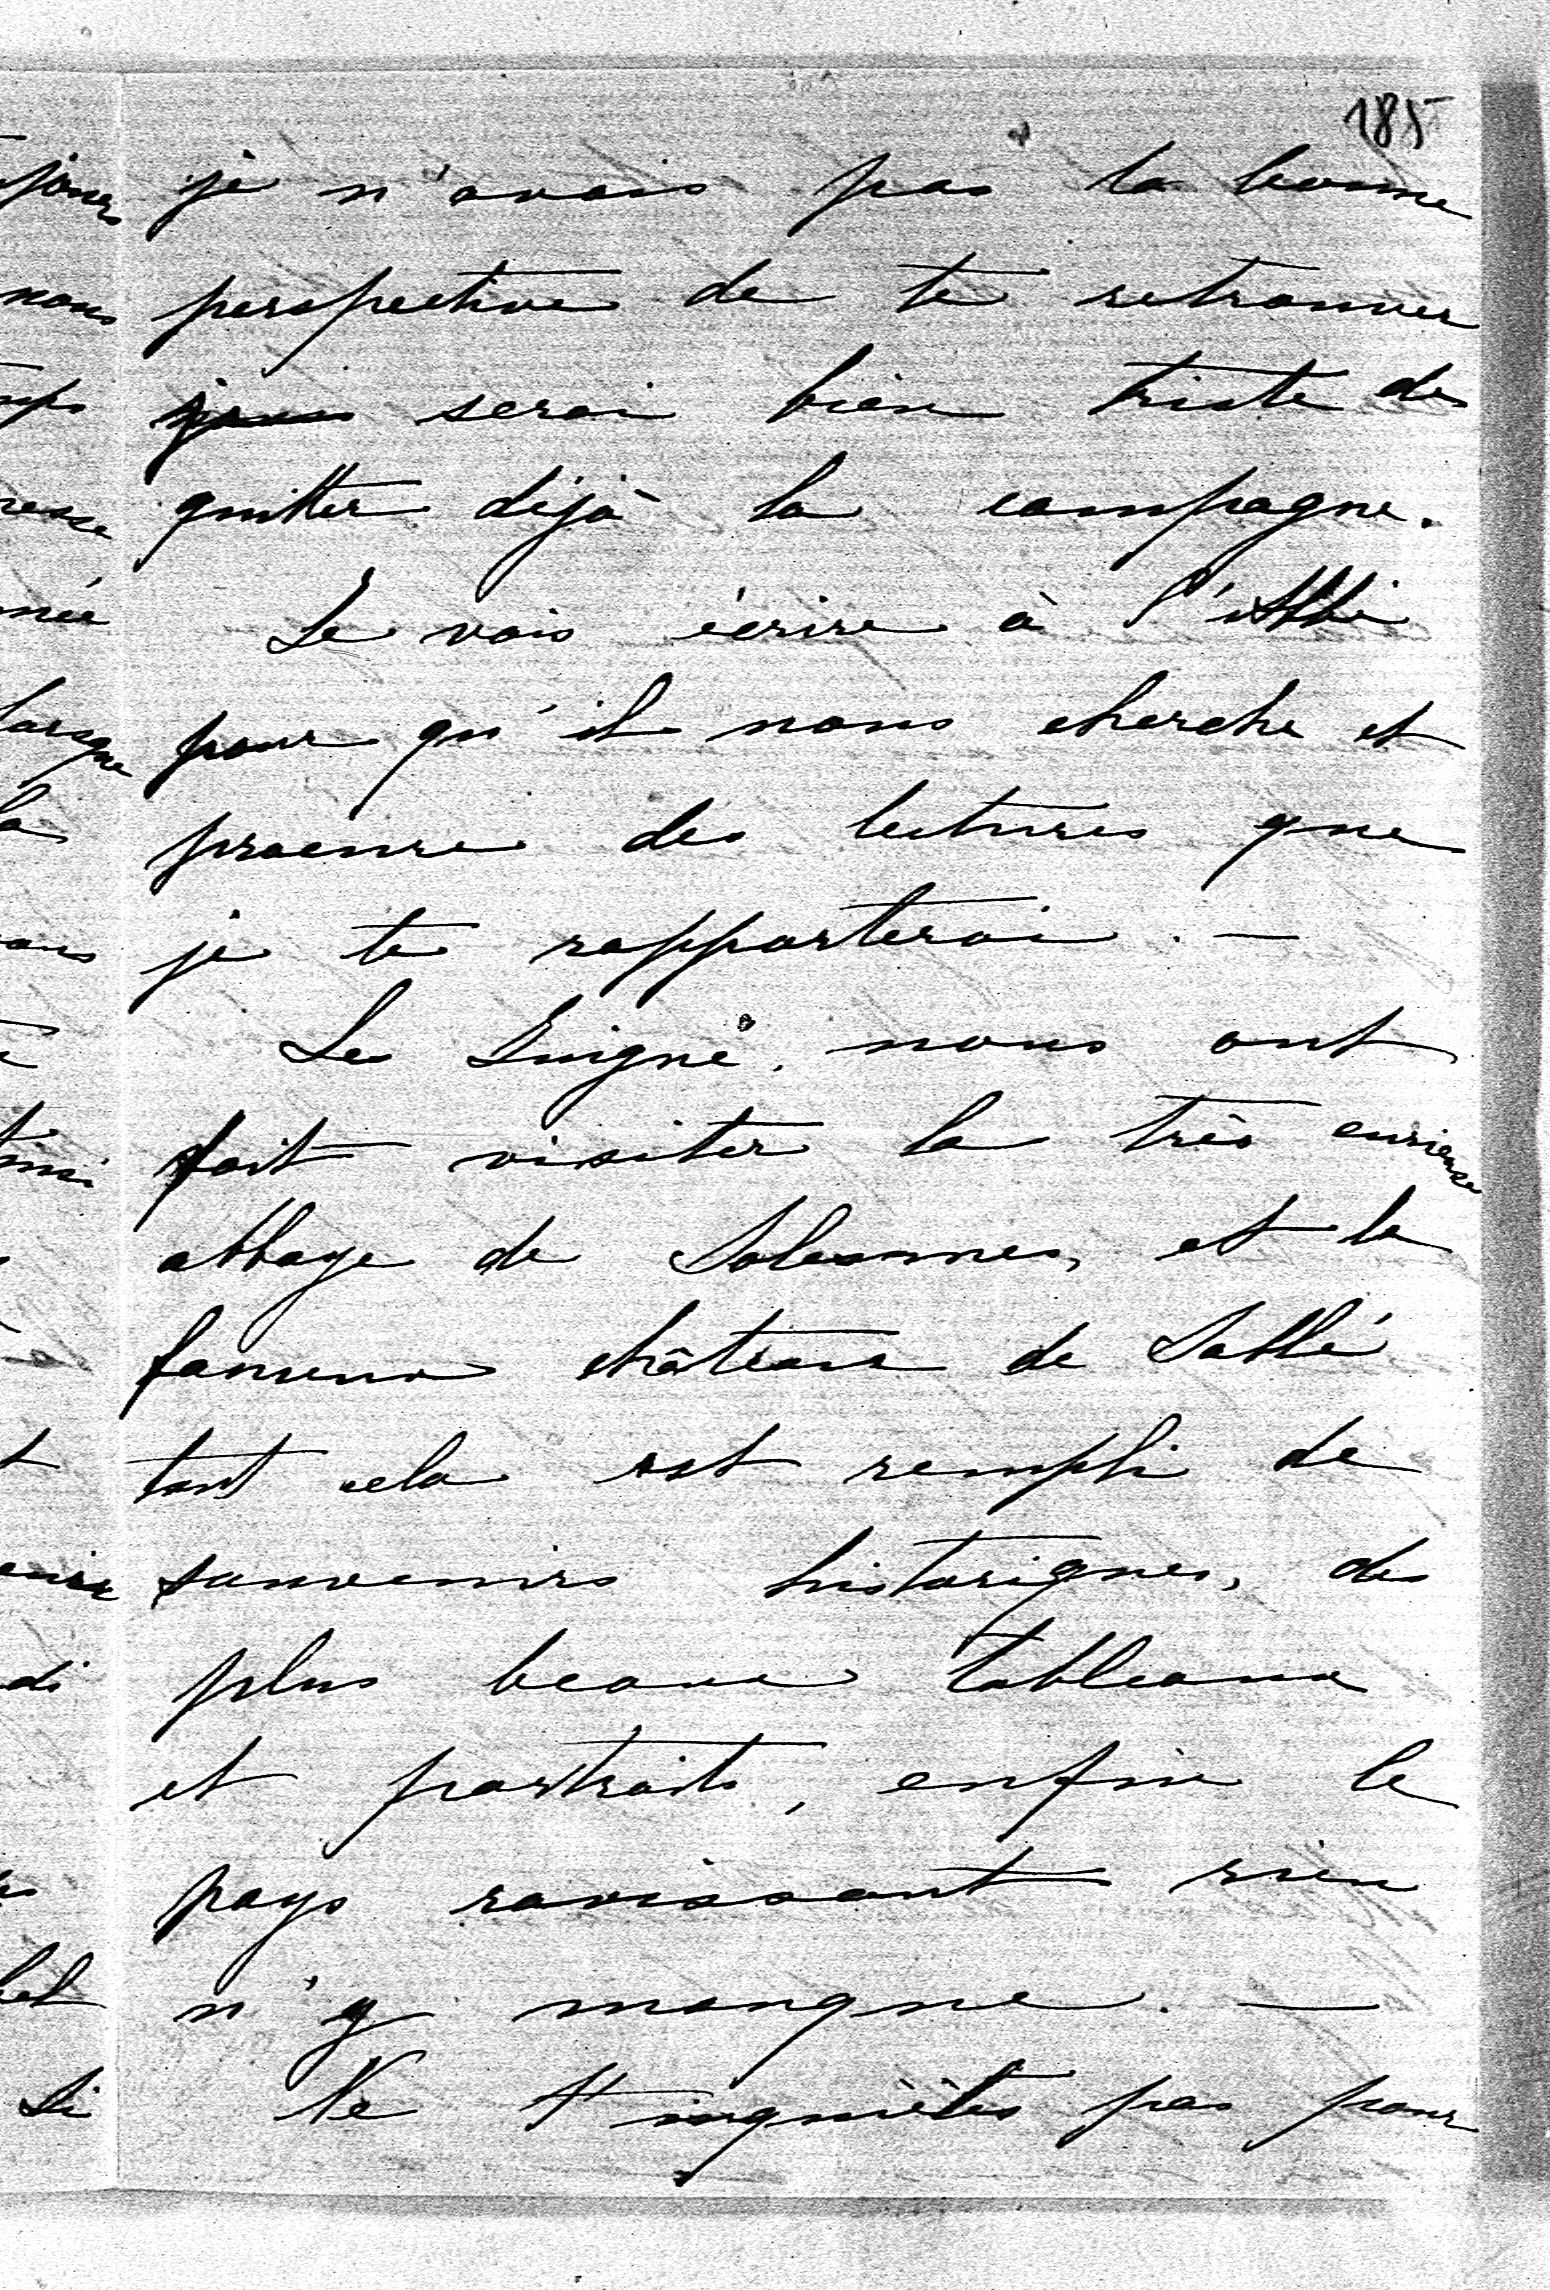 185
je n'avais pas la bonne
perspective de te retrouver
serai bien triste de
quitter déjà la campagne.
Je vais écrire à l'Abbé
pour qu'il nous cherche et
procure des lectures que
je te rapporterai. —
Les Luigné, nous ont
fait visiter la très curieuse
abbaye de Solesmes, et le
fameux château de Sablé
tout cela est rempli de
souvenirs historiques, des
plus beaux tableaux
et portraits, enfin le
pays ravissant rien
n'y manque. —
Ne t'inquiètes pas pour